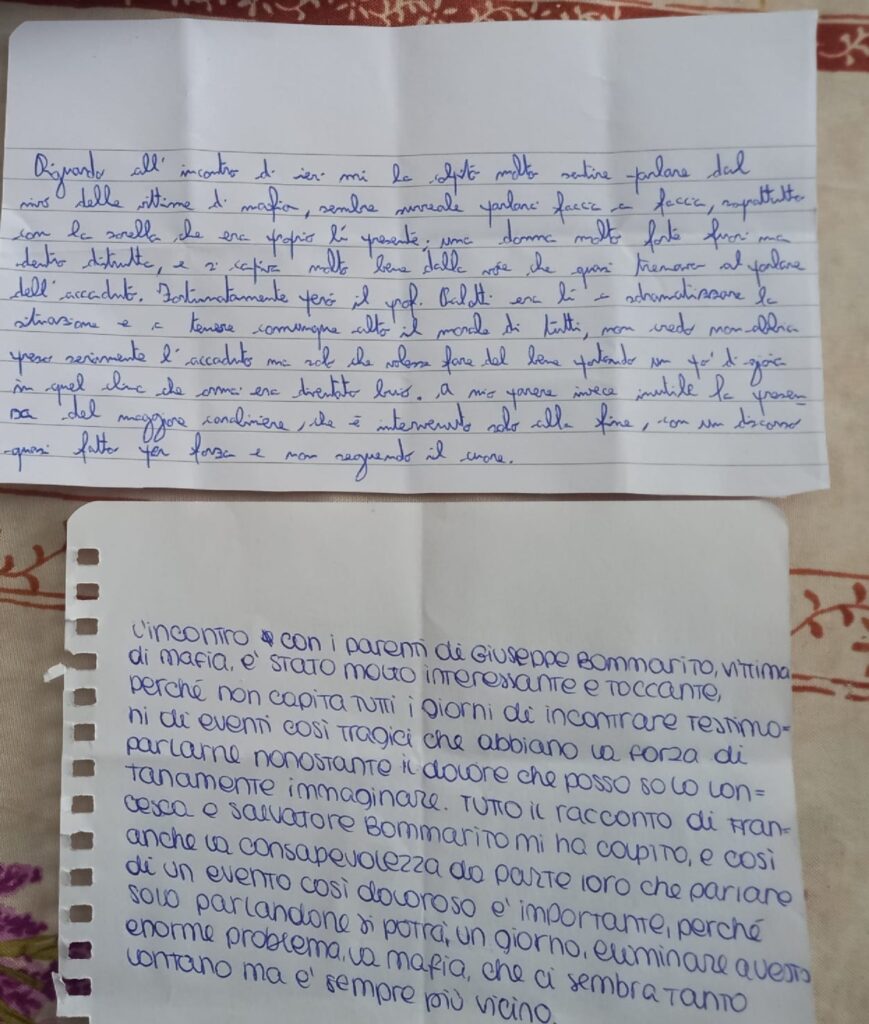 Riguardo all'incontro di ieri mi ha colpito molto sentire parlare dal
vivo delle vittime di mafia, sembra surreale parlarci faccia a faccia, soprattutto
con la sorella che era proprio lì presente; una donna molto forte fuori ma
dentro distrutta, e si capiva molto bene dalla voce che quasi tremava al parlare
dell'accaduto. Fortunatamente però il prof. era lì a sdrammatizzare la
situazione e a tenere comunque alto il morale di tutti, non credo non abbia
preso seriamente l'accaduto ma solo che volesse fare del bene portando un po' di gioia
in quel clima che ormai era diventato buio. A mio parere invece inutile la presen-
za del maggiore carabiniere, che è intervenuto solo alla fine, con un discorso
quasi fatto per forza e non seguendo il cuore.
L'incontro con i parenti di Giuseppe Bommarito, vittima
di mafia, è stato molto interessante e toccante,
perché non capita tutti i giorni di incontrare testimo=
ni di eventi così tragici che abbiano la forza di
parlarne nonostante il dolore che posso solo lon=
tanamente immaginare. Tutto il racconto di Fran=
cesca e Salvatore Bommarito mi ha colpito, e così
anche la consapevolezza da parte loro che parlare
di un evento così doloroso è importante, perché
solo parlandone si potrà, un giorno, eliminare questo
enorme problema, la mafia, che ci sembra tanto
lontano ma è sempre più vicino.